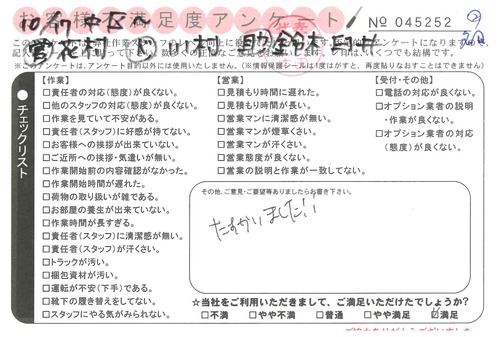 お客様満足度アンケート
№ 045252
10/17 中区〜
※このアンケートは、アンケート目的以外には使用いたしません。(※情報保護シールは1度はがすと、再度貼りなおすことはできません)
チェックリスト
【作業】
□責任者の対応(態度)が良くない。
□他のスタッフの対応(態度)が良くない。
□作業を見ていて不安がある。
□責任者(スタッフ)に好感が持てない。
□お客様への挨拶が出来ていない。
□ご近所への挨拶・気遣いが無い。
□作業開始前の内容確認がなかった。
□作業開始時間が遅れた。
□荷物の取り扱いが雑である。
□お部屋の養生が出来ていない。
□作業時間が長すぎる。
□責任者(スタッフ)に清潔感が無い。
□責任者(スタッフ)が汗くさい。
□トラックが汚い。
□梱包資材が汚い。
□運転が不安(下手)である。
□靴下の履き替えをしてない。
□スタッフにやる気がみられない。
【営業】
□見積もり時間に遅れた。
□見積もり時間が長い。
□営業マンに清潔感が無い。
□営業マンが煙草くさい。
□営業マンが汗くさい。
□営業態度が良くない。
□営業の説明と作業が一致してない。
【受付・その他】
□電話の対応が良くない。
□オプション業者の説明
・作業が良くない。
□オプション業者の対応
(態度)が良くない。
その他、ご意見・ご要望等ありましたらお書き下さい。
たすかりました!!
☆当社をご利用いただきまして、ご満足いただけたでしょうか?
□不満 □やや不満 □普通 □やや満足 ☑満足